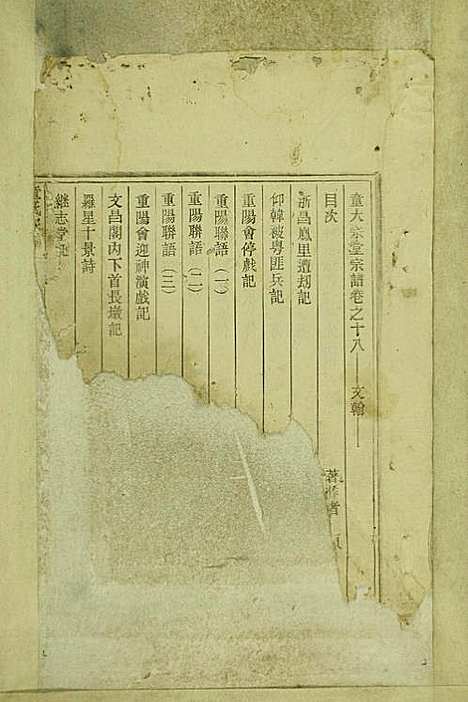 童大宗堂宗譜卷之十八——文翰——
目次
著作者 頁
浙昌鳳里遭刼記
仰韓被粵匪兵記
重陽會停戲記
重陽聯語（一）
重陽聯語（二）
重陽聯語（三）
重陽會迎神演戲記
文昌閣內下首長墩記
羅星十景詩
继志堂記